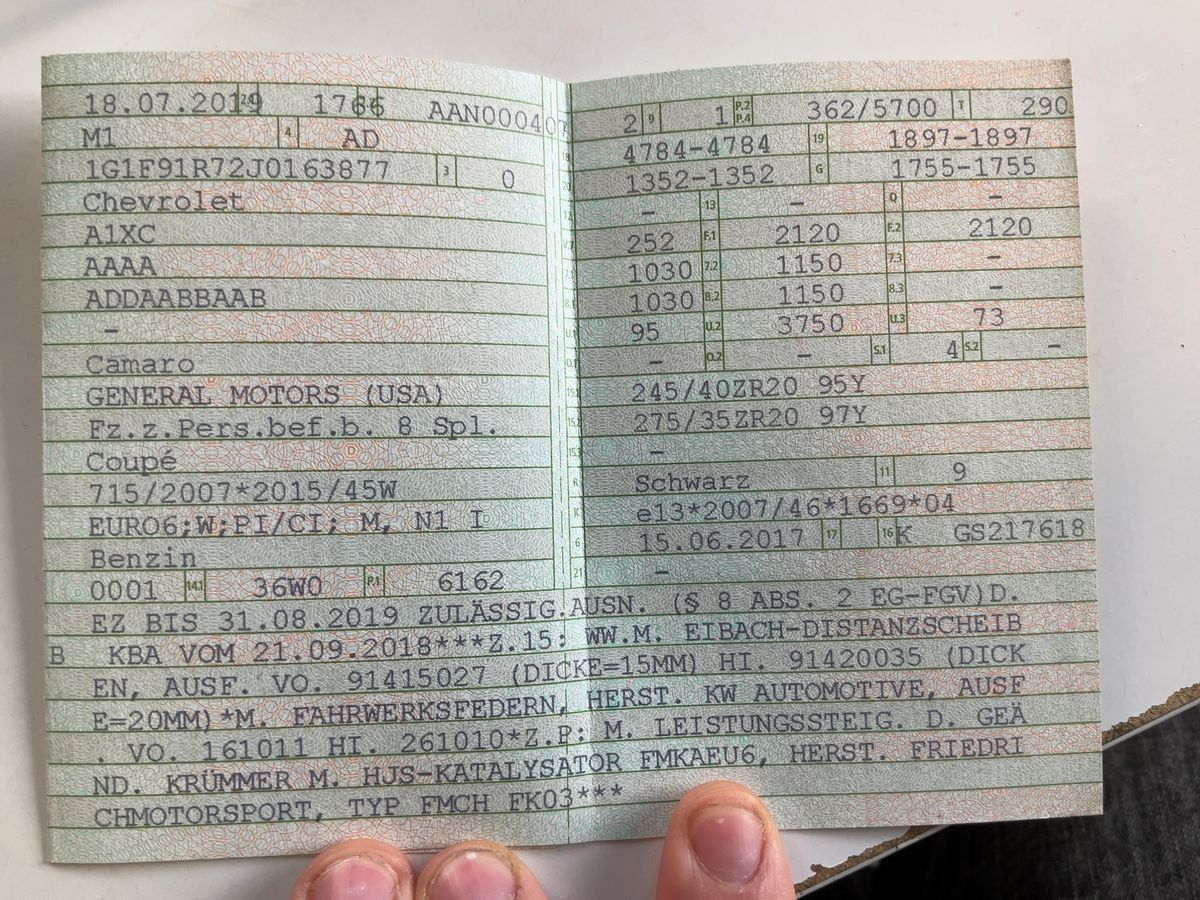 18.07.2019 1766 AAN00040
M1 4 AD
1G1F91R72J0163877 3 0
Chevrolet
A1XC
AAAA
ADDAABBAAB
–
Camaro
GENERAL MOTORS (USA)
Fz.z.Pers.bef.b. 8 Spl.
Coupé
715/2007*2015/45W
EURO6;W;PI/CI; M, N1 I
Benzin
0001 14.1 36W0 P.1 6162
2 9 1 P.2 P.4 362/5700 T 290
4784-4784 19 1897-1897
1352-1352 G 1755-1755
– 13 – Q –
252 F.1 2120 F.2 2120
1030 7.2 1150 7.3 –
1030 8.2 1150 8.3 –
95 U.2 3750 U.3 73
– O.2 – S.1 4 S.2 –
15.1 245/40ZR20 95Y
15.2 275/35ZR20 97Y
15.3 –
R Schwarz 11 9
K e13*2007/46*1669*04
6 15.06.2017 17 16 K GS217618
21 –
EZ BIS 31.08.2019 ZULÄSSIG.AUSN. (§ 8 ABS. 2 EG-FGV)D.
B KBA VOM 21.09.2018***Z.15: WW.M. EIBACH-DISTANZSCHEIB
EN, AUSF. VO. 91415027 (DICKE=15MM) HI. 91420035 (DICK
E=20MM)*M. FAHRWERKSFEDERN, HERST. KW AUTOMOTIVE, AUSF
. VO. 161011 HI. 261010*Z.P: M. LEISTUNGSSTEIG. D. GEÄ
ND. KRÜMMER M. HJS-KATALYSATOR FMKAEU6, HERST. FRIEDRI
CHMOTORSPORT, TYP FMCH FK03***